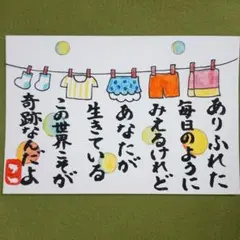 ありふれた
毎日のように
みえるけれど
あなたが
生きている
この世界こそが
奇跡なんだよ